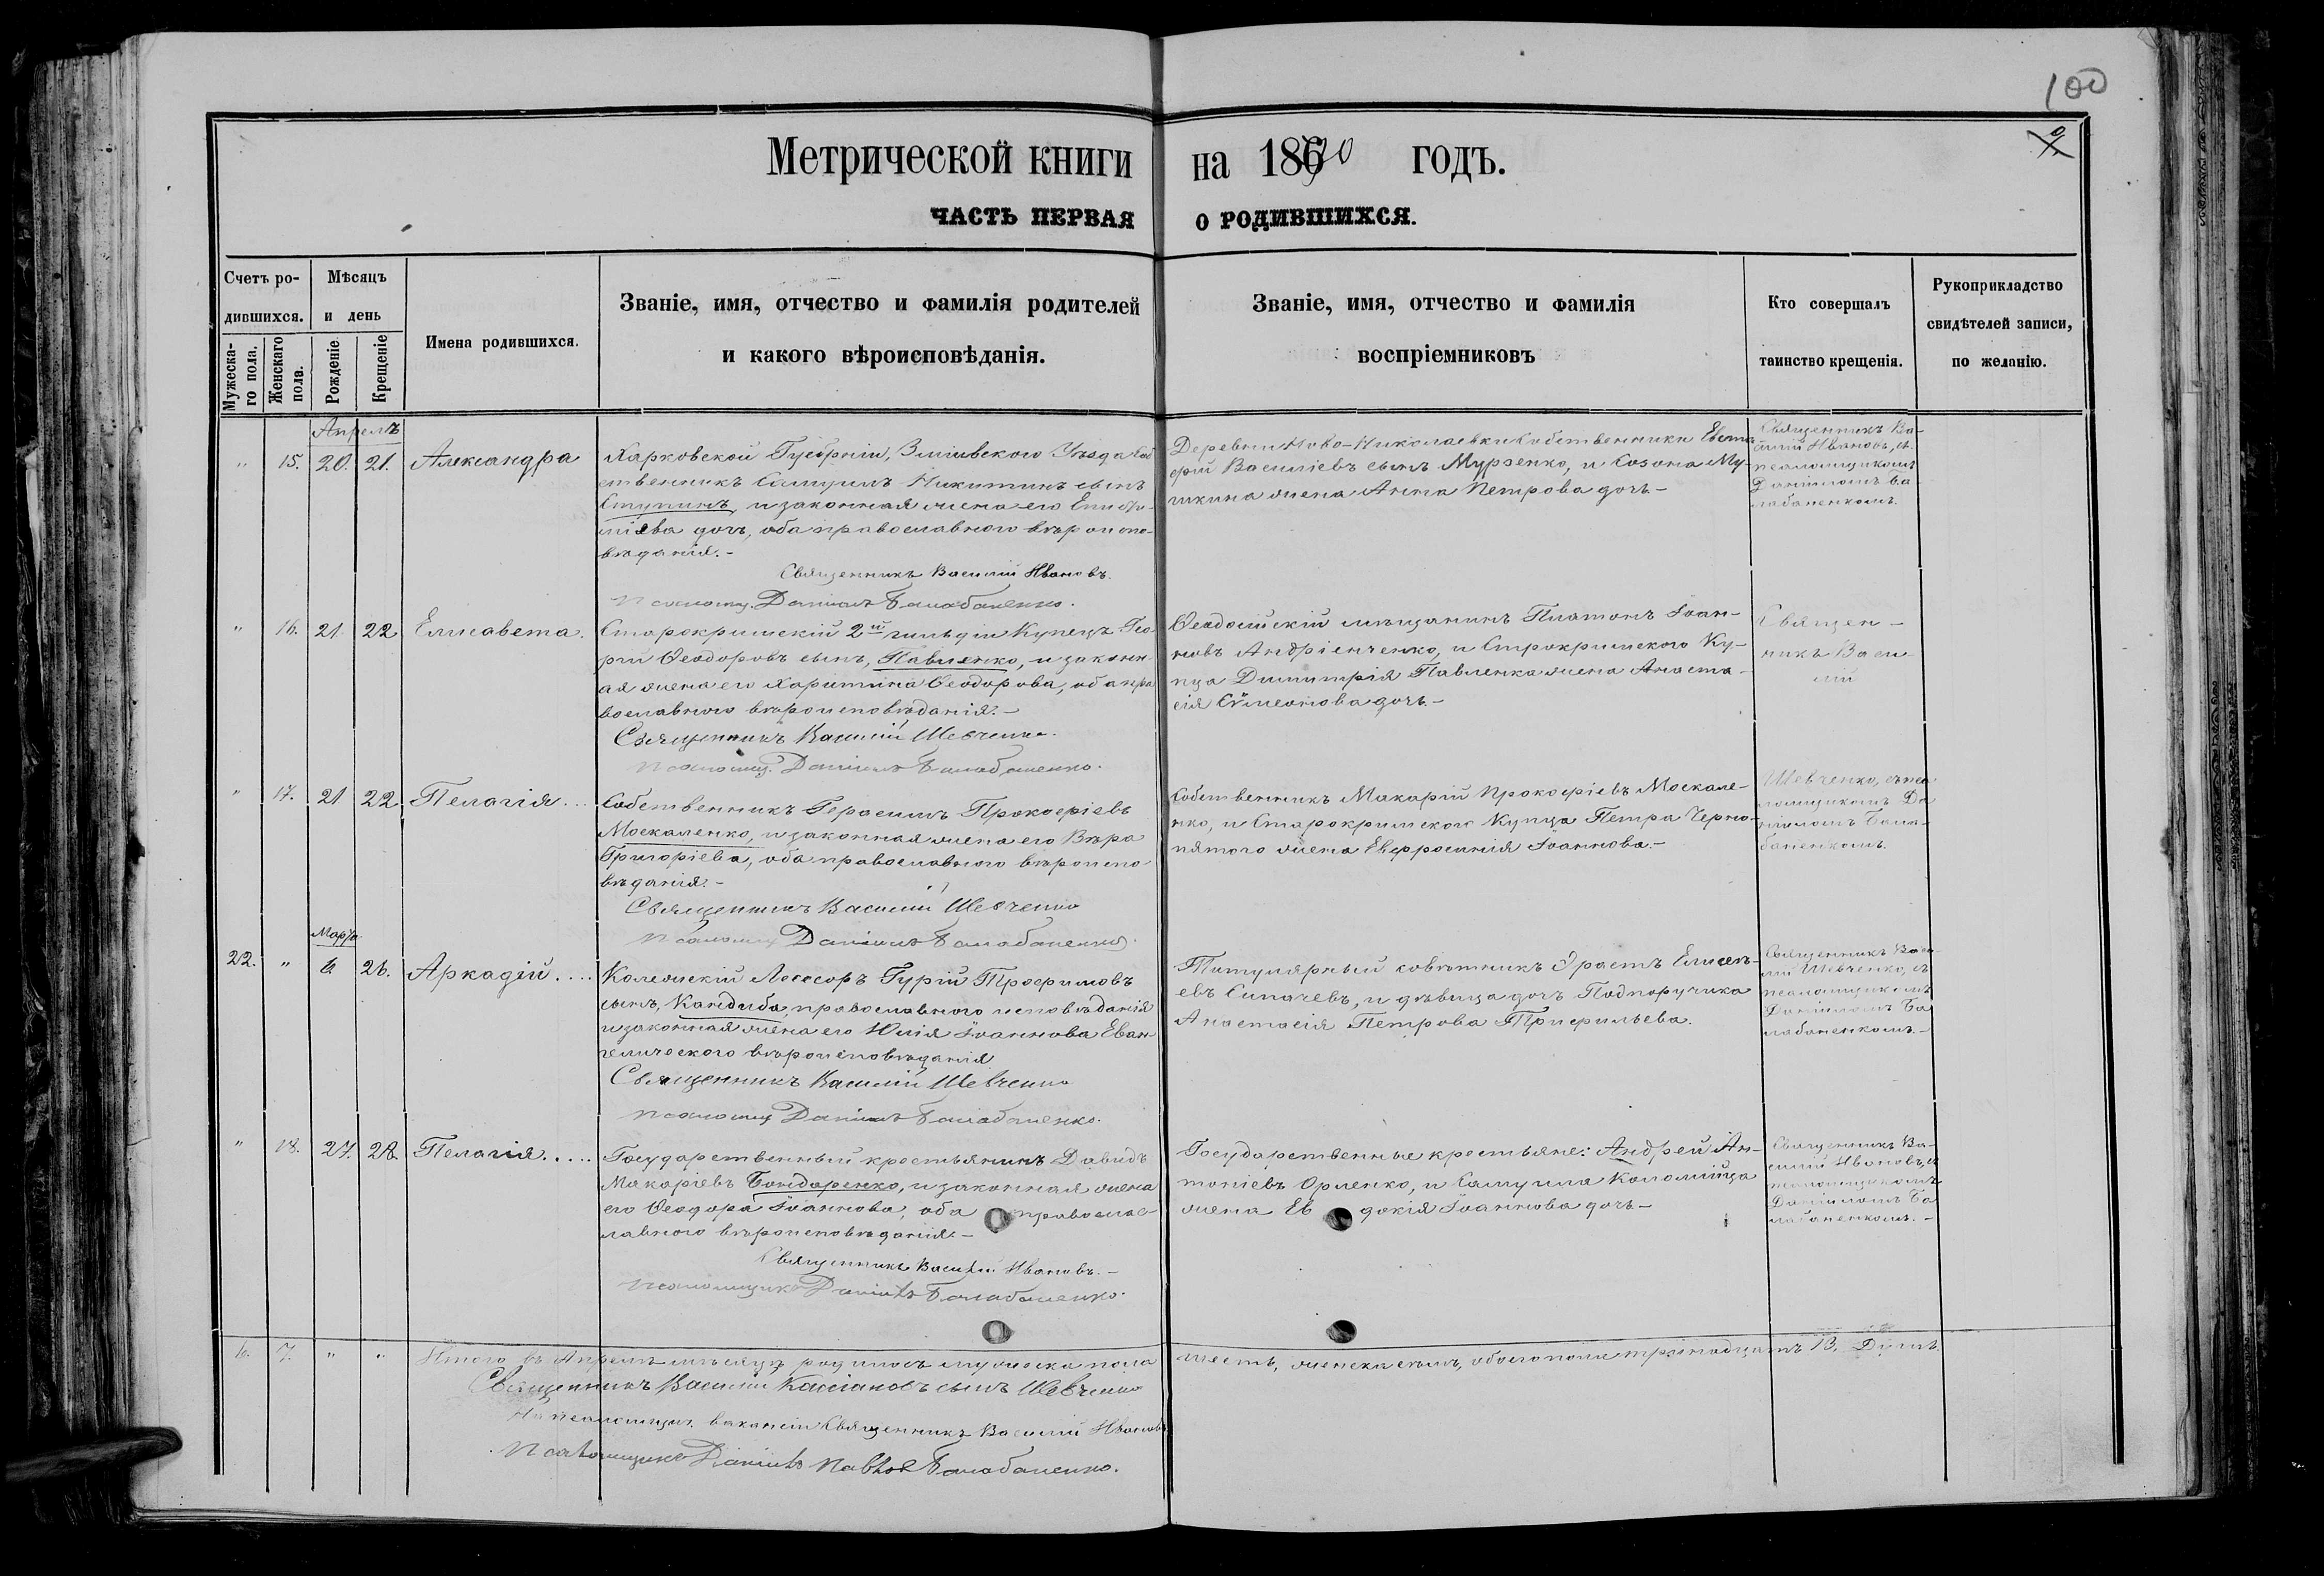 100
Метрической книги на 1870 годъ.
ЧАСТЬ ПЕРВАЯ О РОДИВШИХСЯ.
Счетъ ро-
дившихся.
Мужеска-
го пола.
Женскаго
пола.
Мѣсяцъ
и день
Рожденіе
Крещеніе
Имена родившихся.
Званіе, имя, отчество и фамилія родителей
и какого вѣроисповѣданія.
Званіе, имя, отчество и фамилія
воспріемниковъ
Кто совершалъ
таинство крещенія.
Рукоприкладство
свидѣтелей записи,
по желанію.
Апрель
" 15. 20. 21. Александра
Харковской Губерніи, Зміивского Уѣзда Соб
ственникъ Самуилъ Никитинъ сынъ
Ступинъ, и законная жена его
дочь, оба православного вѣроиспо-
вѣданія.-
Священникъ Василій Ивановъ.
Псаломщ. Даніилъ Балабаненко.
Деревни Ново-Николаевки Собственники Евста-
фій Василіевъ сынъ Мурзенко, и Козьма Му-
жена Анна Петрова дочь-
Священникъ Ва-
силій Ивановъ, съ
псаломщикомъ
Даніиломъ Ба
лабаненкомъ.
" 16. 21. 22. Елисавета.
Старокримскій 2й гильдіи Купецъ Гео
ргій Феодоровъ сынъ, Павленко, и законн-
ая жена его Харитина Феодорова, оба пра
вославного вѣроисповѣданія.-
Священникъ Василій Шевченко.
Псаломщ. Даніилъ Балабаненко.
Феодосійскій мѣщанинъ Платонъ Іоан-
новъ Андріенченко, и Строкримского Ку-
пца Димитрія Павленка жена Анаста-
сія Сѵмеонова дочь.-
Священ-
никъ Васи
лій
" 17. 21 22 Пелагія...
Собственникъ Герасимъ Прокофіевъ
Москаленко, и законная жена его Вѣра
Григоріева, оба православного вѣроиспо-
вѣданія.-
Священникъ Василій Шевченко
Псаломщ Даніилъ Балабаненко.
Собственникъ Макарій Прокофіевъ Москале-
нко, и Старокримского Купца Петра Черно-
пятого жена Евфросинія Іоаннова.-
Шевченко, съ пса
ломщикомъ Да
ніиломъ Бала-
баненкомъ.
Марта
22. " 6 26. Аркадій....
Колежскій Асессоръ Гурій Трофимовъ
сынъ, Кандиба, православного исповѣданія
и законная жена его Юлія Іоаннова Еван-
гелического вѣроисповѣданія
Священникъ Василій Шевченко
Псаломщ Даніилъ Балабаненко.
Титулярный совѣтникъ Эрастъ Елисѣ-
евъ Сипачевъ, и дѣвица дочь Подпоручика
Анастасія Петрова Трисрильева.
Священникъ Васи-
лій Шевченко, съ
псаломщикомъ
Даніиломъ Ба
лабаненкомъ.-
" 18. 27. 28. Пелагія.....
Государственный крестьянинъ Давидъ
Макаріевъ Бондаренко, и законная жена
его Феодора Іоаннова, оба правосла-
славного вѣроисповѣданія.-
Священникъ Василій Ивановъ.-
Псаломщикъ Даніилъ Балабаненко.
Государственные крестьяне: Андрей Ан-
тоніевъ Орленко, и Самуила Коломійца
жена Евдокія Іоаннова дочь-
Священникъ Ва-
силій Ивановъ, съ
псаломщикомъ
Даніиломъ Ба
лабаненкомъ.-
6. 7. " " Итого въ Апрелѣ мѣсяцѣ родилось мужеска пола шесть, женска семь, обоего пола тринадцать 13. Душъ.
Священникъ Василій Кассіановъ сынъ Шевченко
На псаломщич. вакансіи Священникъ Василій Ивановъ
Псаломщикъ Даніилъ Павловъ Балабаненко.